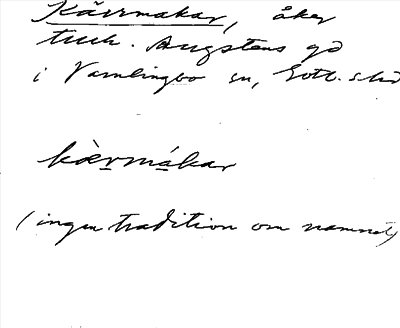 Kärrmakar, åker
tuch. Augstens gd
i Vamlingbo sn, Gotl. s
kärmákar
(ingen tradition om namnet)